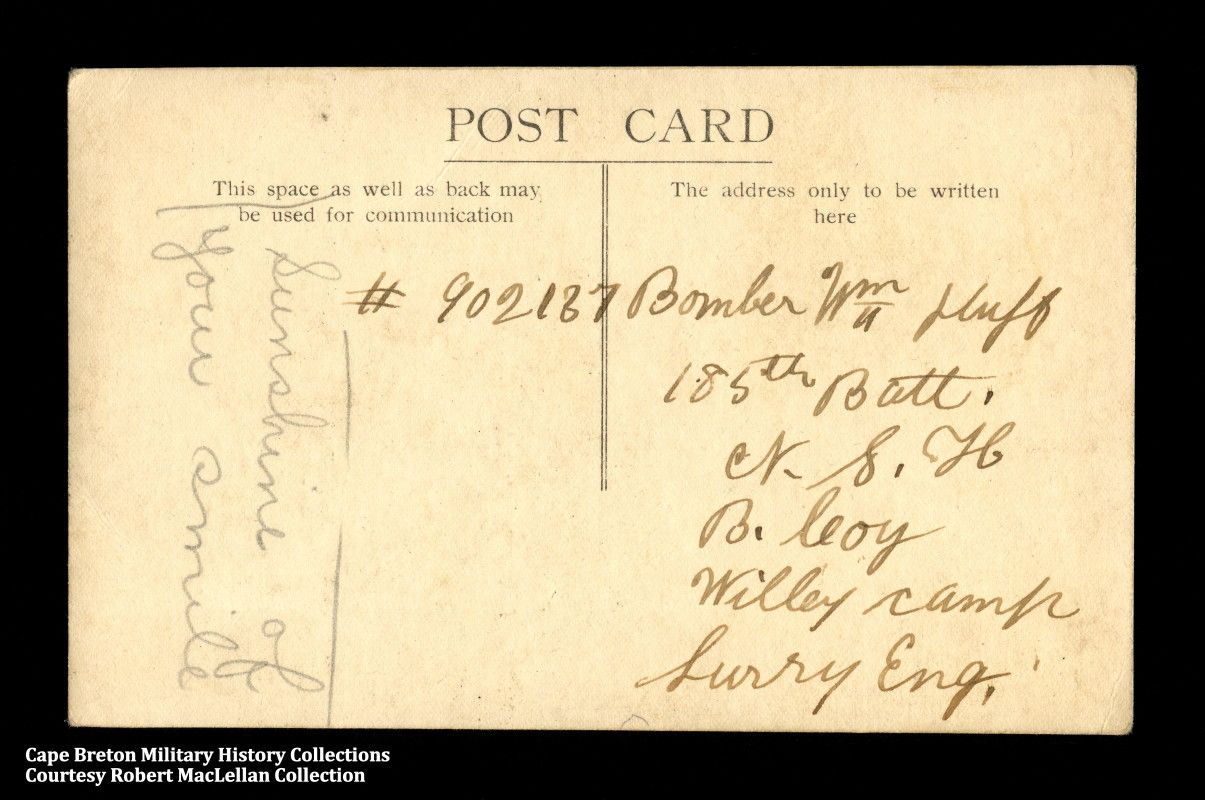 POST CARD
This space as well as back may
be used for communication
The address only to be written
here
# 902187 Bomber Wm Huff
185th Batt.
N. S. H
B. Coy
Willey camp
Surry Eng.
Sunshine of
Your smile
Cape Breton Military History Collections
Courtesy Robert MacLellan Collection